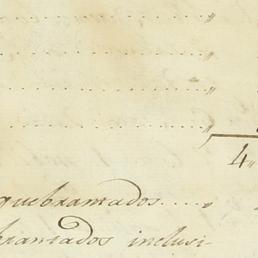 ........ „
........ „
........ „
........ „
4„
quebrantados.... „
brantados inclusi-